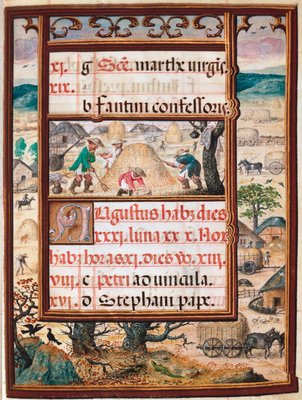 xj. g Scē. marthe virgīs
xix.
b Fantini confessoris
Augustus habz dies
xxxj. luna xxx. Nox
habz horas xj. dies vo. xiij.
viij. c petri ad vincula.
xvj. d Stephani pape.